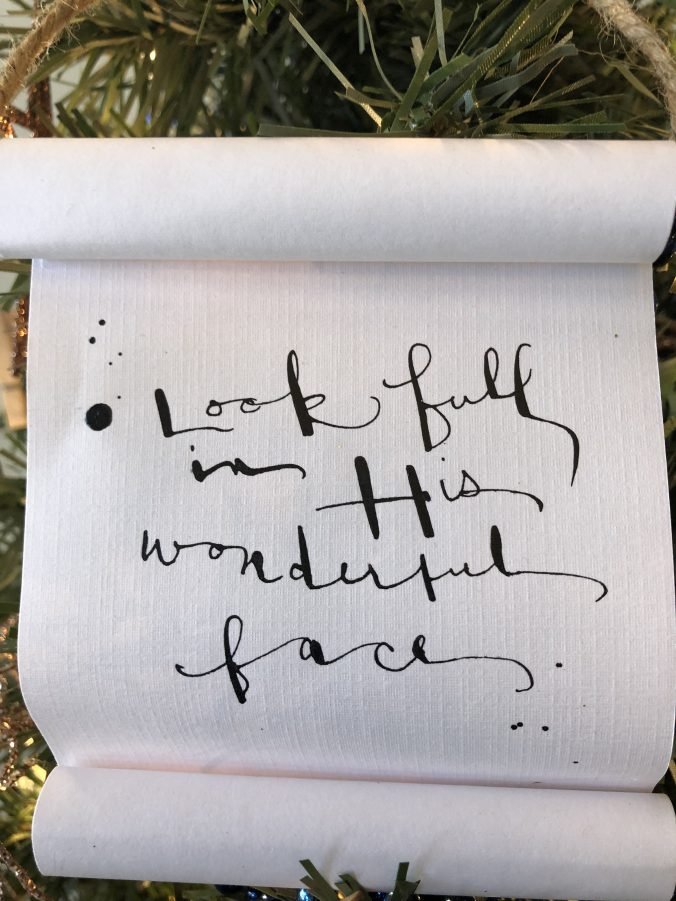 Look full
in His
wonderful
face.